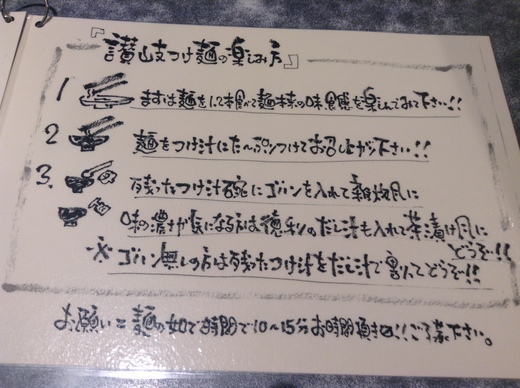 『讃岐つけ麺の楽しみ方』
1 まずは麺を1〜2本食べて麺本来の味、食感を楽しんでみて下さい!!
2 麺をつけ汁にた〜ぷりつけてお召し上がり下さい!!
3. 残ったつけ汁碗にゴハンを入れて雑炊風に
味の濃さが気になる方は徳利のだし汁も入れて茶漬け風に
どうぞ!!
※ゴハン無しの方は残ったつけ汁をだし汁で割ってどうぞ!!
お願い=麺の茹で時間で10〜15分お時間頂きます!!ご了承下さい。